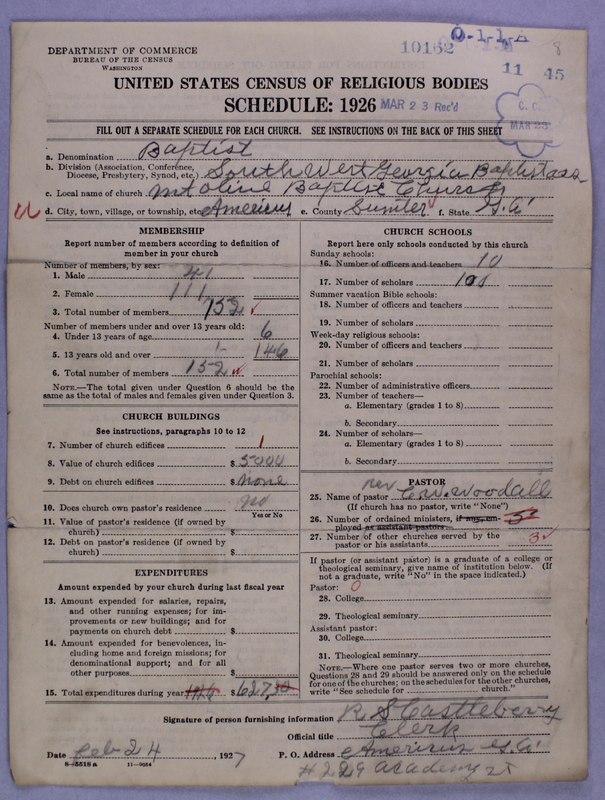 O-1-1-A
10162
8
DEPARTMENT OF COMMERCE
BUREAU OF THE CENSUS
WASHINGTON
11 45
UNITED STATES CENSUS OF RELIGIOUS BODIES
SCHEDULE: 1926 MAR 23 Rec'd
C. C.
MAR 23
FILL OUT A SEPARATE SCHEDULE FOR EACH CHURCH. SEE INSTRUCTIONS ON THE BACK OF THIS SHEET
a. Denomination Baptist
b. Division (Association, Conference, Diocese, Presbytery, Synod, etc.) South West Georgia Baptist ass
c. Local name of church Mt Olive Baptist Church
d. City, town, village, or township, etc. Americus e. County Sumter f. State Ga
MEMBERSHIP
Report number of members according to definition of
member in your church
Number of members, by sex:
1. Male 41
2. Female 111
3. Total number of members 152
Number of members under and over 13 years old:
4. Under 13 years of age 6
5. 13 years old and over 146
6. Total number of members 152
NOTE.—The total given under Question 6 should be the
same as the total of males and females given under Question 3.
CHURCH BUILDINGS
See instructions, paragraphs 10 to 12
7. Number of church edifices 1
8. Value of church edifices $ 5000
9. Debt on church edifices $ None
10. Does church own pastor's residence
Yes or No
11. Value of pastor's residence (if owned by
church) $
12. Debt on pastor's residence (if owned by
church) $
EXPENDITURES
Amount expended by your church during last fiscal year
13. Amount expended for salaries, repairs,
and other running expenses; for im-
provements or new buildings; and for
payments on church debt $
14. Amount expended for benevolences, in-
cluding home and foreign missions; for
denominational support; and for all
other purposes $
15. Total expenditures during year $ 627
CHURCH SCHOOLS
Report here only schools conducted by this church
Sunday schools:
16. Number of officers and teachers 10
17. Number of scholars 101
Summer vacation Bible schools:
18. Number of officers and teachers
19. Number of scholars
Week-day religious schools:
20. Number of officers and teachers
21. Number of scholars
Parochial schools:
22. Number of administrative officers
23. Number of teachers—
a. Elementary (grades 1 to 8)
b. Secondary
24. Number of scholars—
a. Elementary (grades 1 to 8)
b. Secondary
PASTOR
25. Name of pastor Rev C. W. Woodall
(If church has no pastor, write "None")
26. Number of ordained ministers, if any, em-
ployed as assistant pastors
27. Number of other churches served by the
pastor or his assistants 3
If pastor (or assistant pastor) is a graduate of a college or
theological seminary, give name of institution below. (If
not a graduate, write "No" in the space indicated.)
Pastor: 0
28. College
29. Theological seminary
Assistant pastor:
30. College
31. Theological seminary
NOTE.—Where one pastor serves two or more churches,
Questions 28 and 29 should be answered only on the schedule
for one of the churches; on the schedules for the other churches,
write "See schedule for church."
Signature of person furnishing information R. S. Castleberry
Official title Clerk
Date Feb 24, 1927 P. O. Address Americus Ga
8-5518a 11-9664
#229 academy st